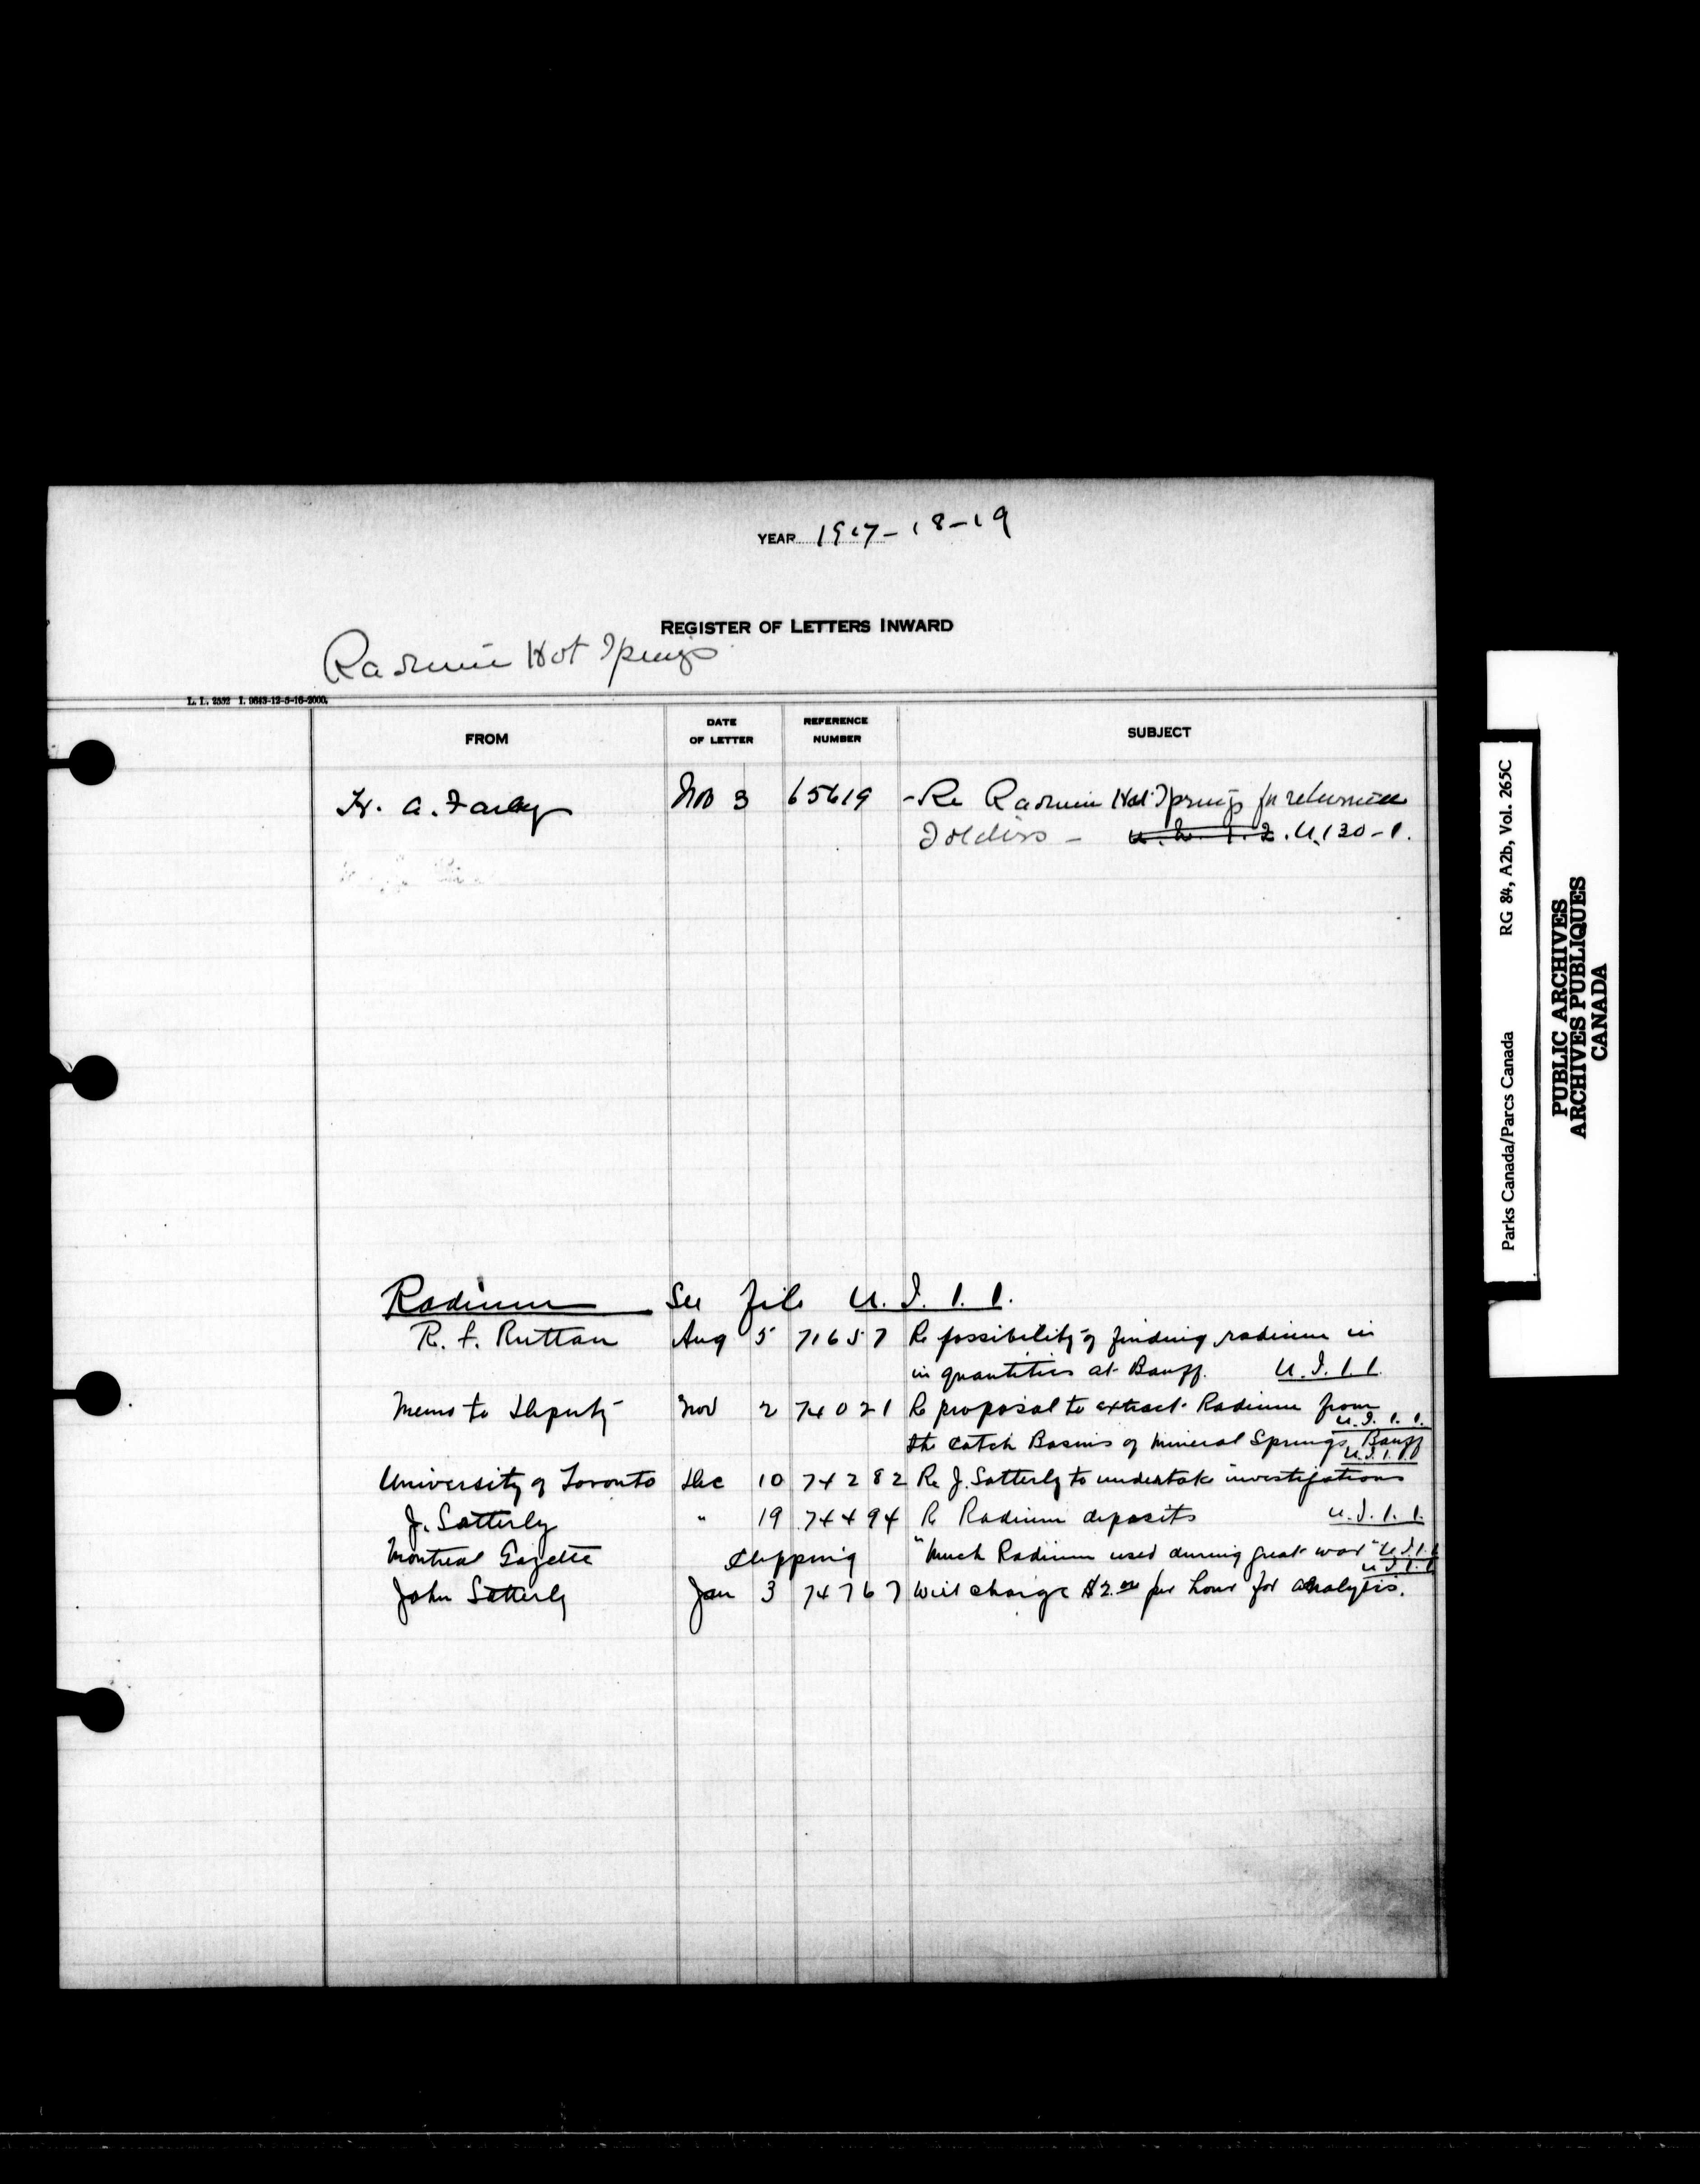 YEAR 1917-18-19
REGISTER OF LETTERS INWARD
Radium Hot Springs
L. L. 2532 I. 9643-12-5-16-2000.
FROM DATE OF LETTER REFERENCE NUMBER SUBJECT
H. A. Farley Nov 3 65619 - Re Radium Hot Springs for returned
Soldiers - U.130-1.
Radium See file U.I.1.1.
R. F. Ruttan Aug 5 71657 Re possibility of finding radium in
in quantities at Banff. U.I.1.1.
Memo to Deputy Nov 2 74021 Re proposal to extract Radium from
U.I.1.1.
the Catch Basins of Mineral Springs, Banff
U.I.1.1
University of Toronto Dec 10 74282 Re J. Satterly to undertake investigations
J. Satterly " 19 74494 Re Radium deposits U.I.1.1.
Montreal Gazette Clipping "Much Radium used during great war" U.I.1.1
U.I.1.1
John Satterly Jan 3 74767 Will charge $2.00 per hour for analysis.
Parks Canada/Parcs Canada RG 84, A2b, Vol. 265C
PUBLIC ARCHIVES
ARCHIVES PUBLIQUES
CANADA